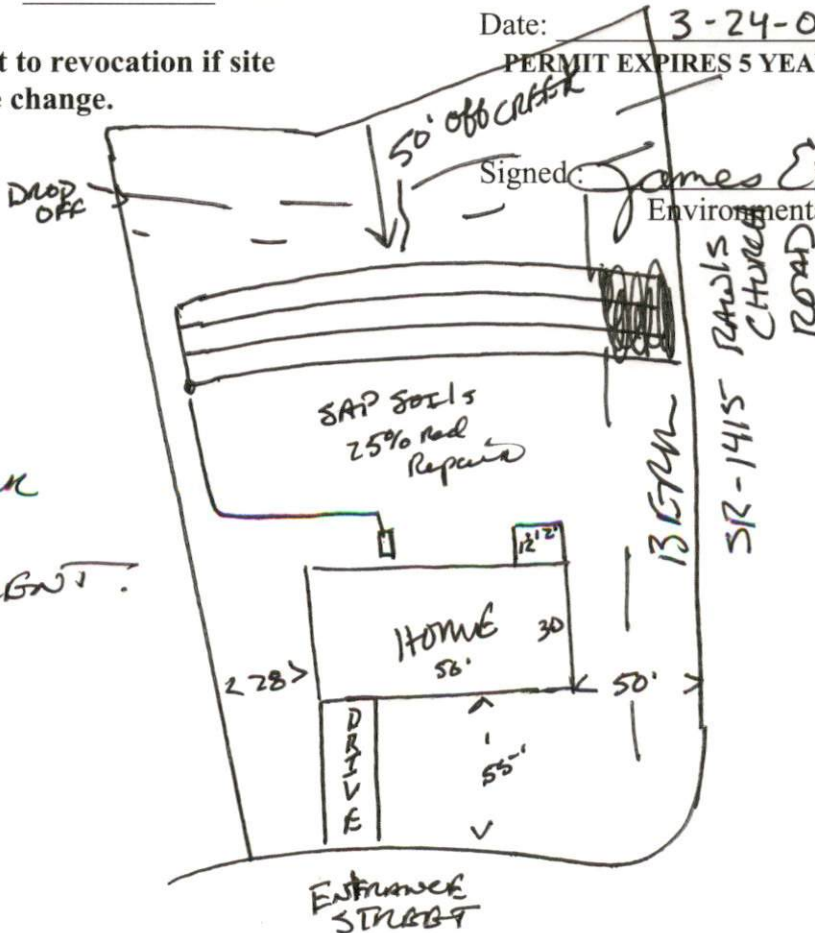 Date: 3-24-0
t to revocation if site
PERMIT EXPIRES 5 YEA
e change.
50' Off CREEK
DROP
OFF
Signed: James E
Environment
RAWLS
CHURCH
ROAD
SR-1415
BERM
SAP SOILS
25% Red
Repair
ENT.
12'12'
HOME 30
56'
<28>
<50'>
DRIVE
55'
ENTRANCE
STREET